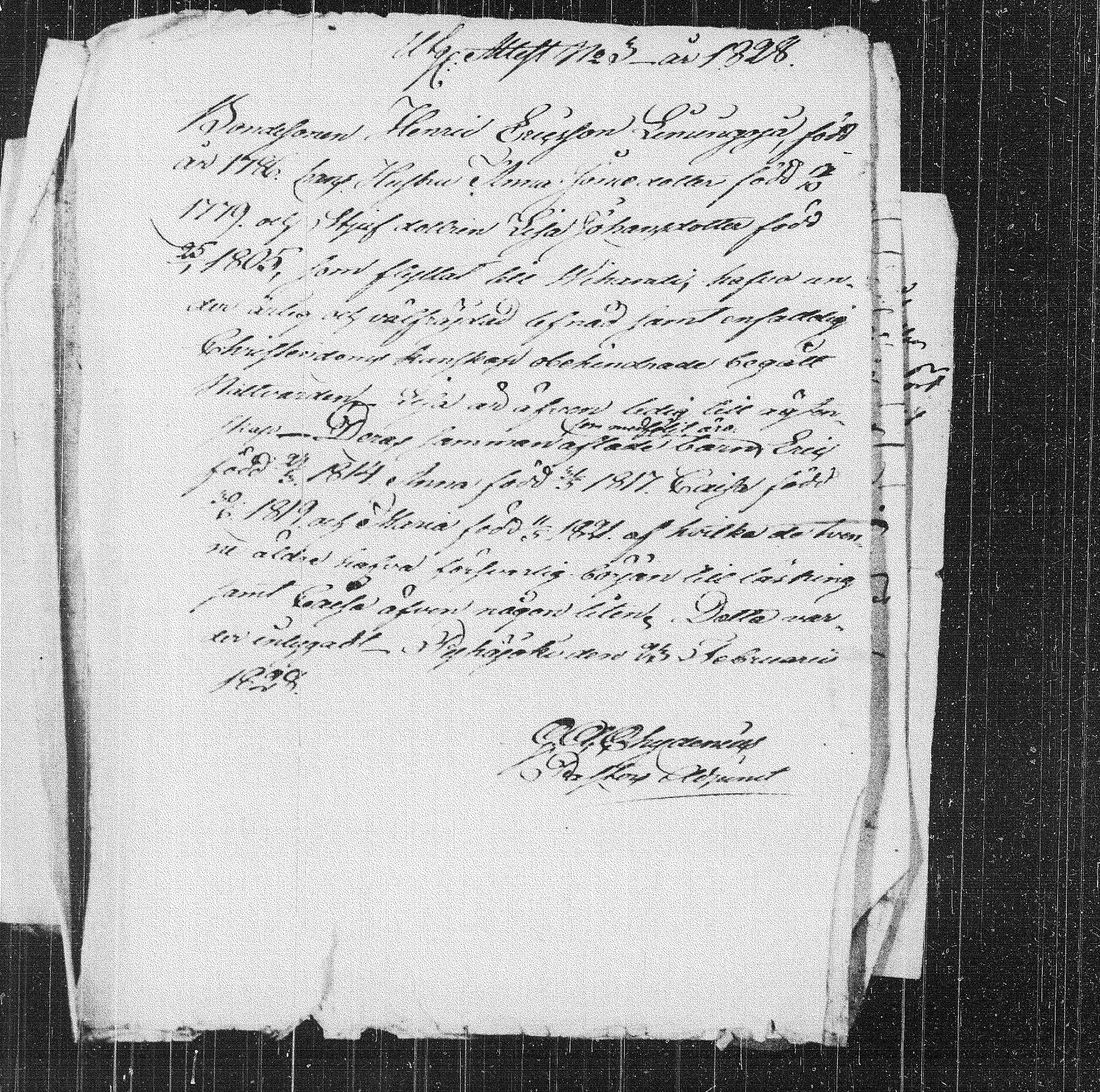 Utg. Attest No 3 år 1828.
Bondesonen Henric Ericsson född
år 1786. hans Hustru Anna dotter född
1779. och Styfdottren Lisa Johansdotter född
25/ 1805, som flyttat till Wihandi, hafva un-
der ärlig och välfräjdad lefnad samt enfaldig
Christendoms kunskap obehindrade begått
Nattvarden. Lisa är äfven ledig till ägten-
skap. Deras samman aflade barn Eric
född 1814 Anna född 1817. Caisa född
1819. och Maria född 11/5 1821. af hvilka de tven-
ne äldre hafva försvarlig början till läsning
samt Caisa äfven någon liten. Detta var-
der intygadt Pyhäjoki den Februarii
1828.
Chydenius
Pastors Adjunct